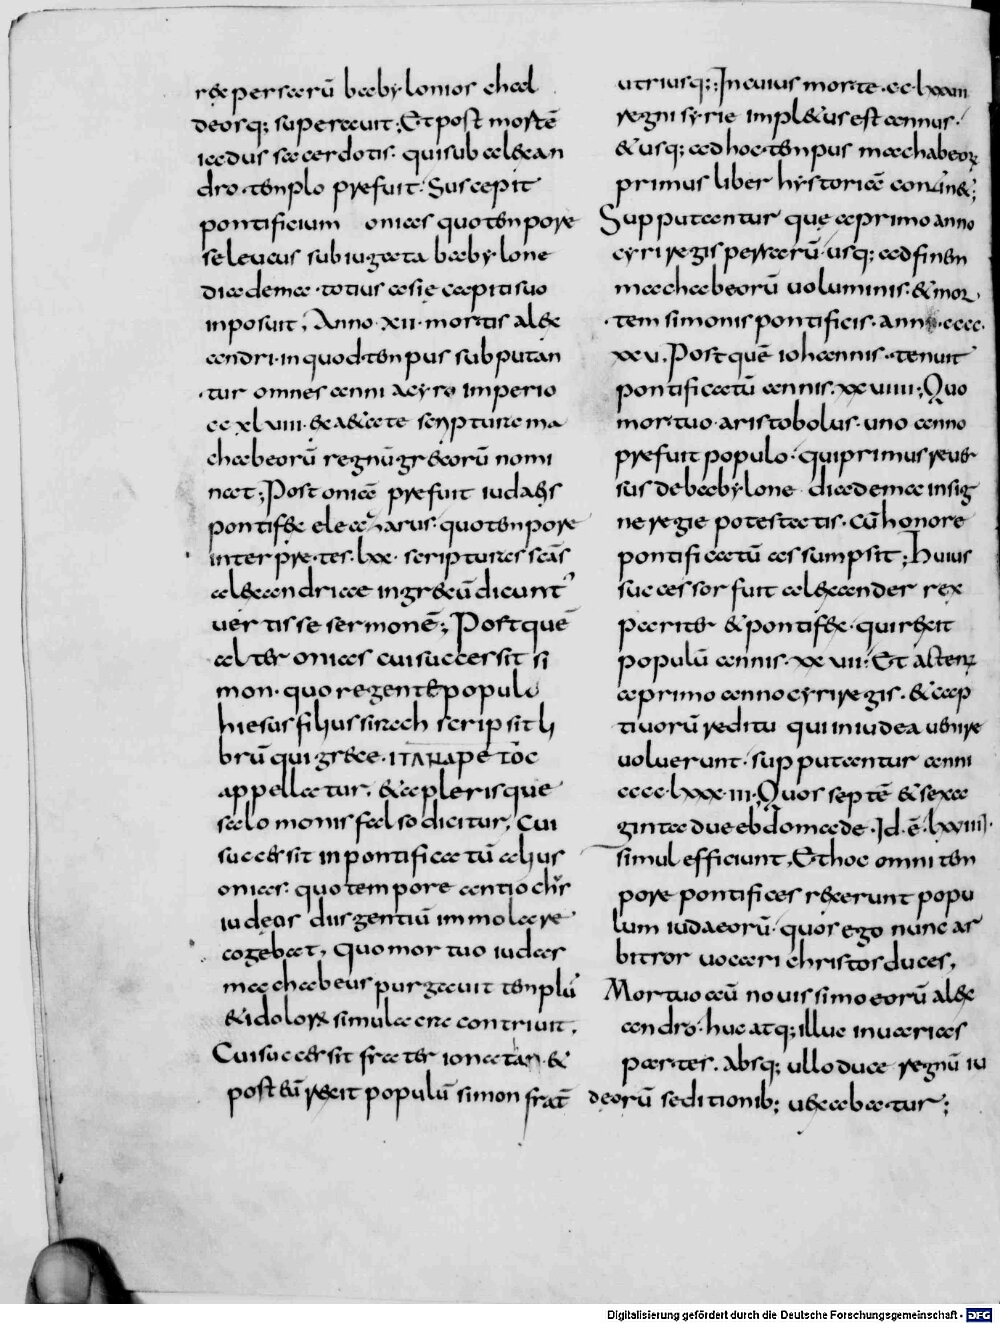 rex persarū babylonios chal
deosq; superauit; Et post mortē
iaddus sacerdotis. qui sub alexan
dro templo prefuit. Suscepit
pontificium onias quo tempore
seleucus subiugata babylone
diadema totius asię capiti suo
inposuit, Anno xii mortis alex
andri. in quod tempus subputan
tur omnes anni a cyro imperio
cc xl viiii. & a&ate scripture ma
chabeorū regnū grecorū nomi
nat; Post oniā prefuit iudaeis
pontifex eleazarus. quo tempore
interpretes. lxx. scripturas scās
alexandriae in grecū dicunt
uertisse sermonē; Post quē
alter onias cui successit si
mon. quo regente populū
hiesus filius sirach scripsit li
brū qui grece. ΠΑΝΑΡΕΤΟC
appellatur, & a plerisque
salomonis falso dicitur, Cui
successit in pontificatū alius
onias. quo tempore antiochus
iudeos diis gentiū immolare
cogebat, quo mortuo iudas
machabeus purgauit templū
& idolorꝝ simulacra contriuit,
Cui successit frater ionatan. &
post eū rexit populū simon frat
utriusq; In cuius morte. cc. lxxvii
regni syrie impl&us est annus.
& usq; ad hoc tempus machabeorꝝ
primus liber hystoriā contin&;
Supputantur quę a primo anno
cyri regis persarū usq; ad finem
machabeorū uoluminis. & mor
tem simonis pontificis. anni cccc.
xxv. Post quē iohannis tenuit
pontificatū annis. xxviiii; Quo
mortuo aristobolus. uno anno
prefuit populo. qui primus reuer
sus de babylone diadema insig
ne regie potestatis. cū honore
pontificatū assumpsit; Huius
successor fuit alexander rex
pariter & pontifex. qui rexit
populū annis. xxvii. Et actenꝰ
a primo anno cyri regis. & cap
tiuorū reditu qui in iudea uenire
uoluerunt. supputantur anni
cccc. lxxx. iii. Quos septē & sexa
ginta due ebdomade. Id. ē. lxviiii.
simul efficiunt, Et hoc omni tem
pore pontifices rexerunt popu
lum iudaeorū. quos ego nunc ar
bitror uocari christos duces,
Mortuo aū nouissimo eorū alex
andro. huc atq; illuc in uarias
partes. absq; ullo duce regnū iu
deorū seditionib; uexabatur;
Digitalisierung gefördert durch die Deutsche Forschungsgemeinschaft - DFG